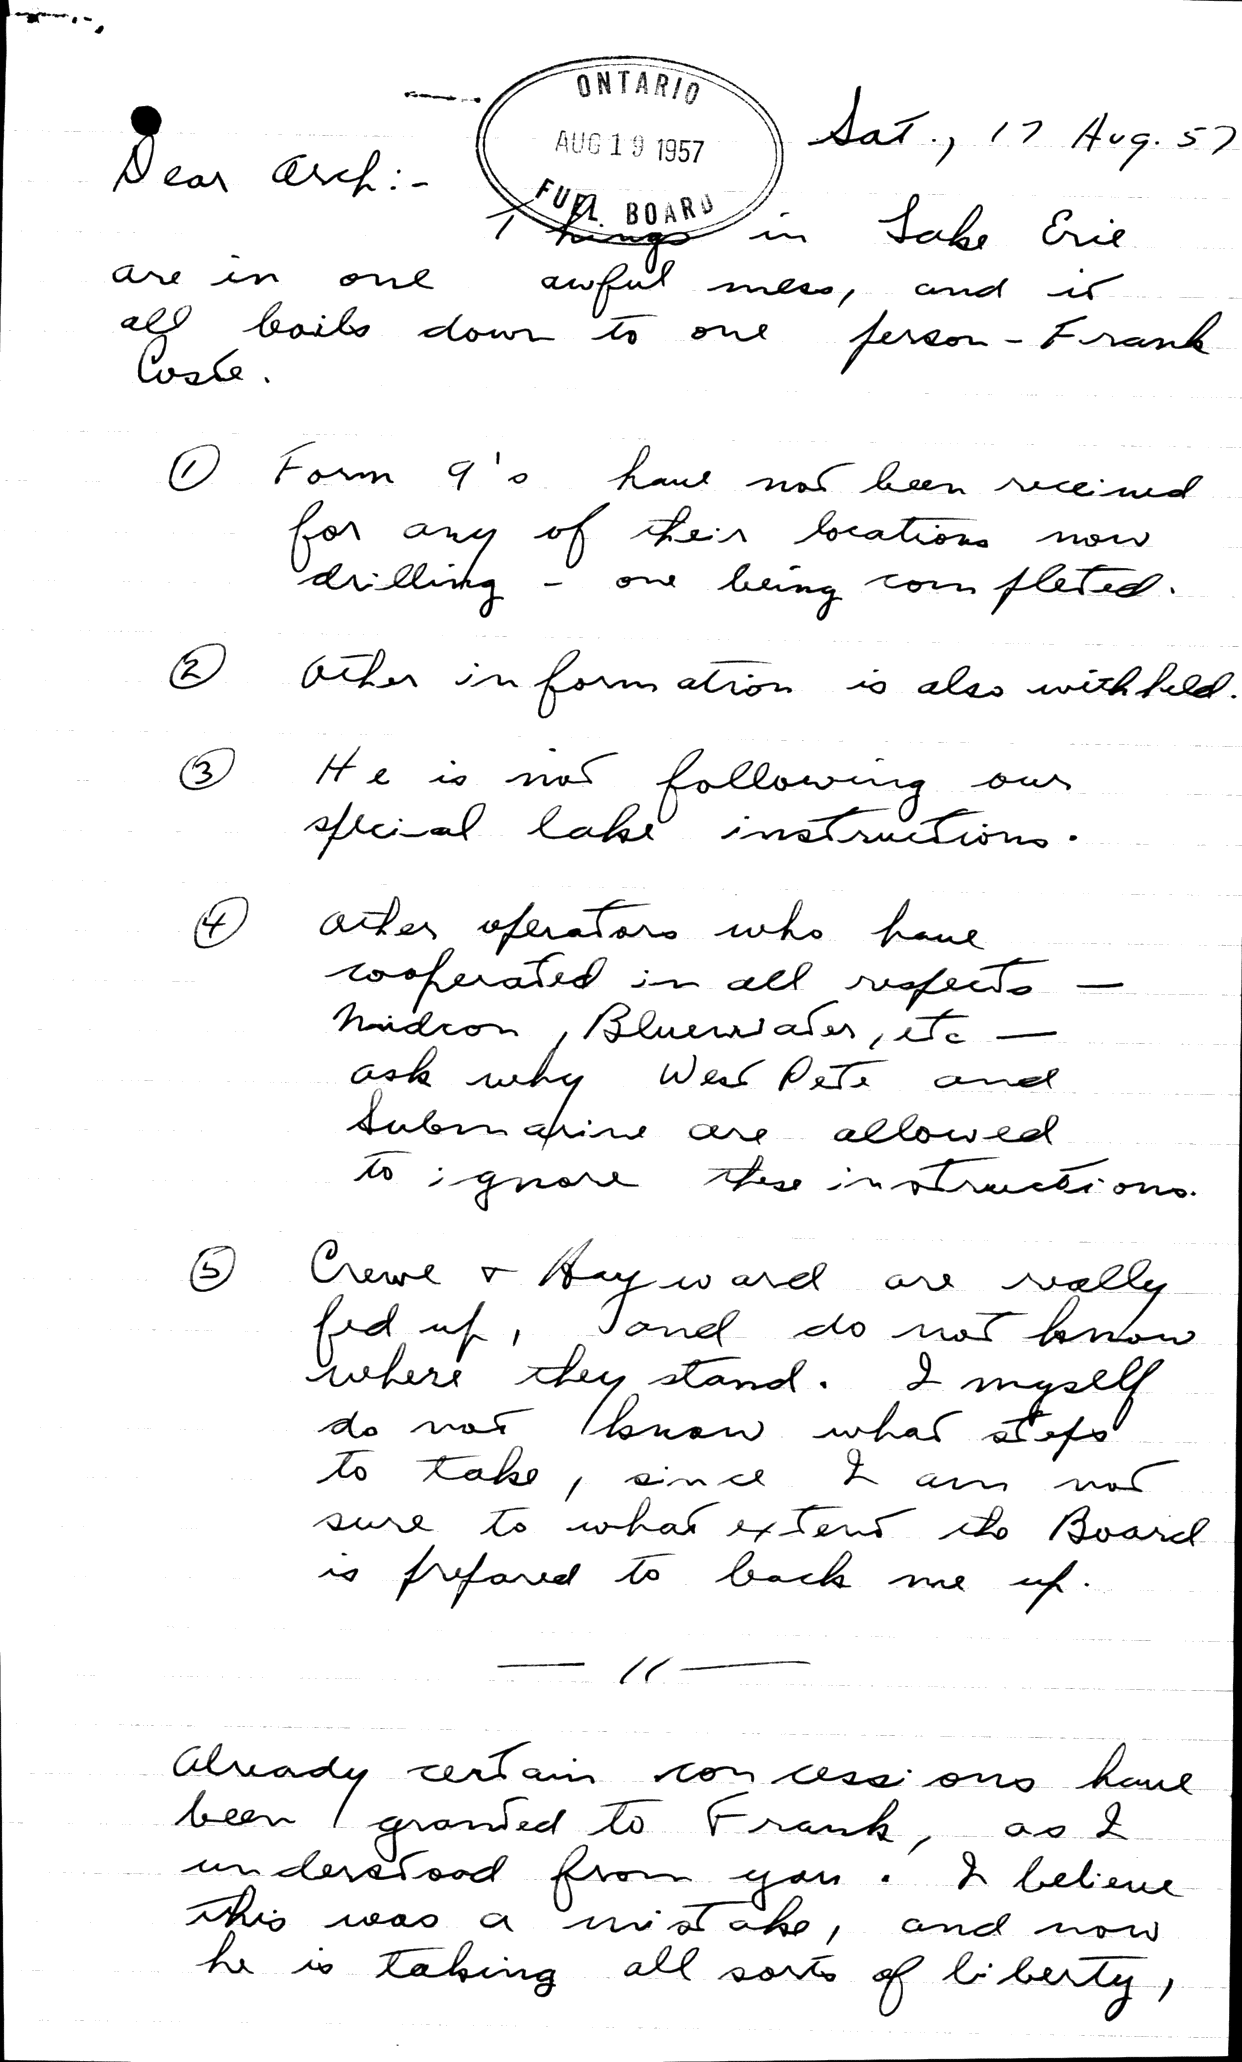 ONTARIO
AUG 19 1957
FUEL BOARD
Sat., 17 Aug. 57
Dear Arch:-
Things in Lake Erie
are in one awful mess, and it
all boils down to one person - Frank
Coste.
① Form 9's have not been received
for any of their locations now
drilling - one being completed.
② Other information is also withheld.
③ He is not following our
special lake instructions.
④ Other operators who have
cooperated in all respects —
Midcon, Bluewater, etc —
ask why West Pete and
Submarine are allowed
to ignore these instructions.
⑤ Crewe & Hayward are really
fed up, and do not know
where they stand. I myself
do not know what steps
to take, since I am not
sure to what extent the Board
is prepared to back me up.
— // —
Already certain concessions have
been granted to Frank, as I
understood from you. I believe
this was a mistake, and now
he is taking all sorts of liberty,